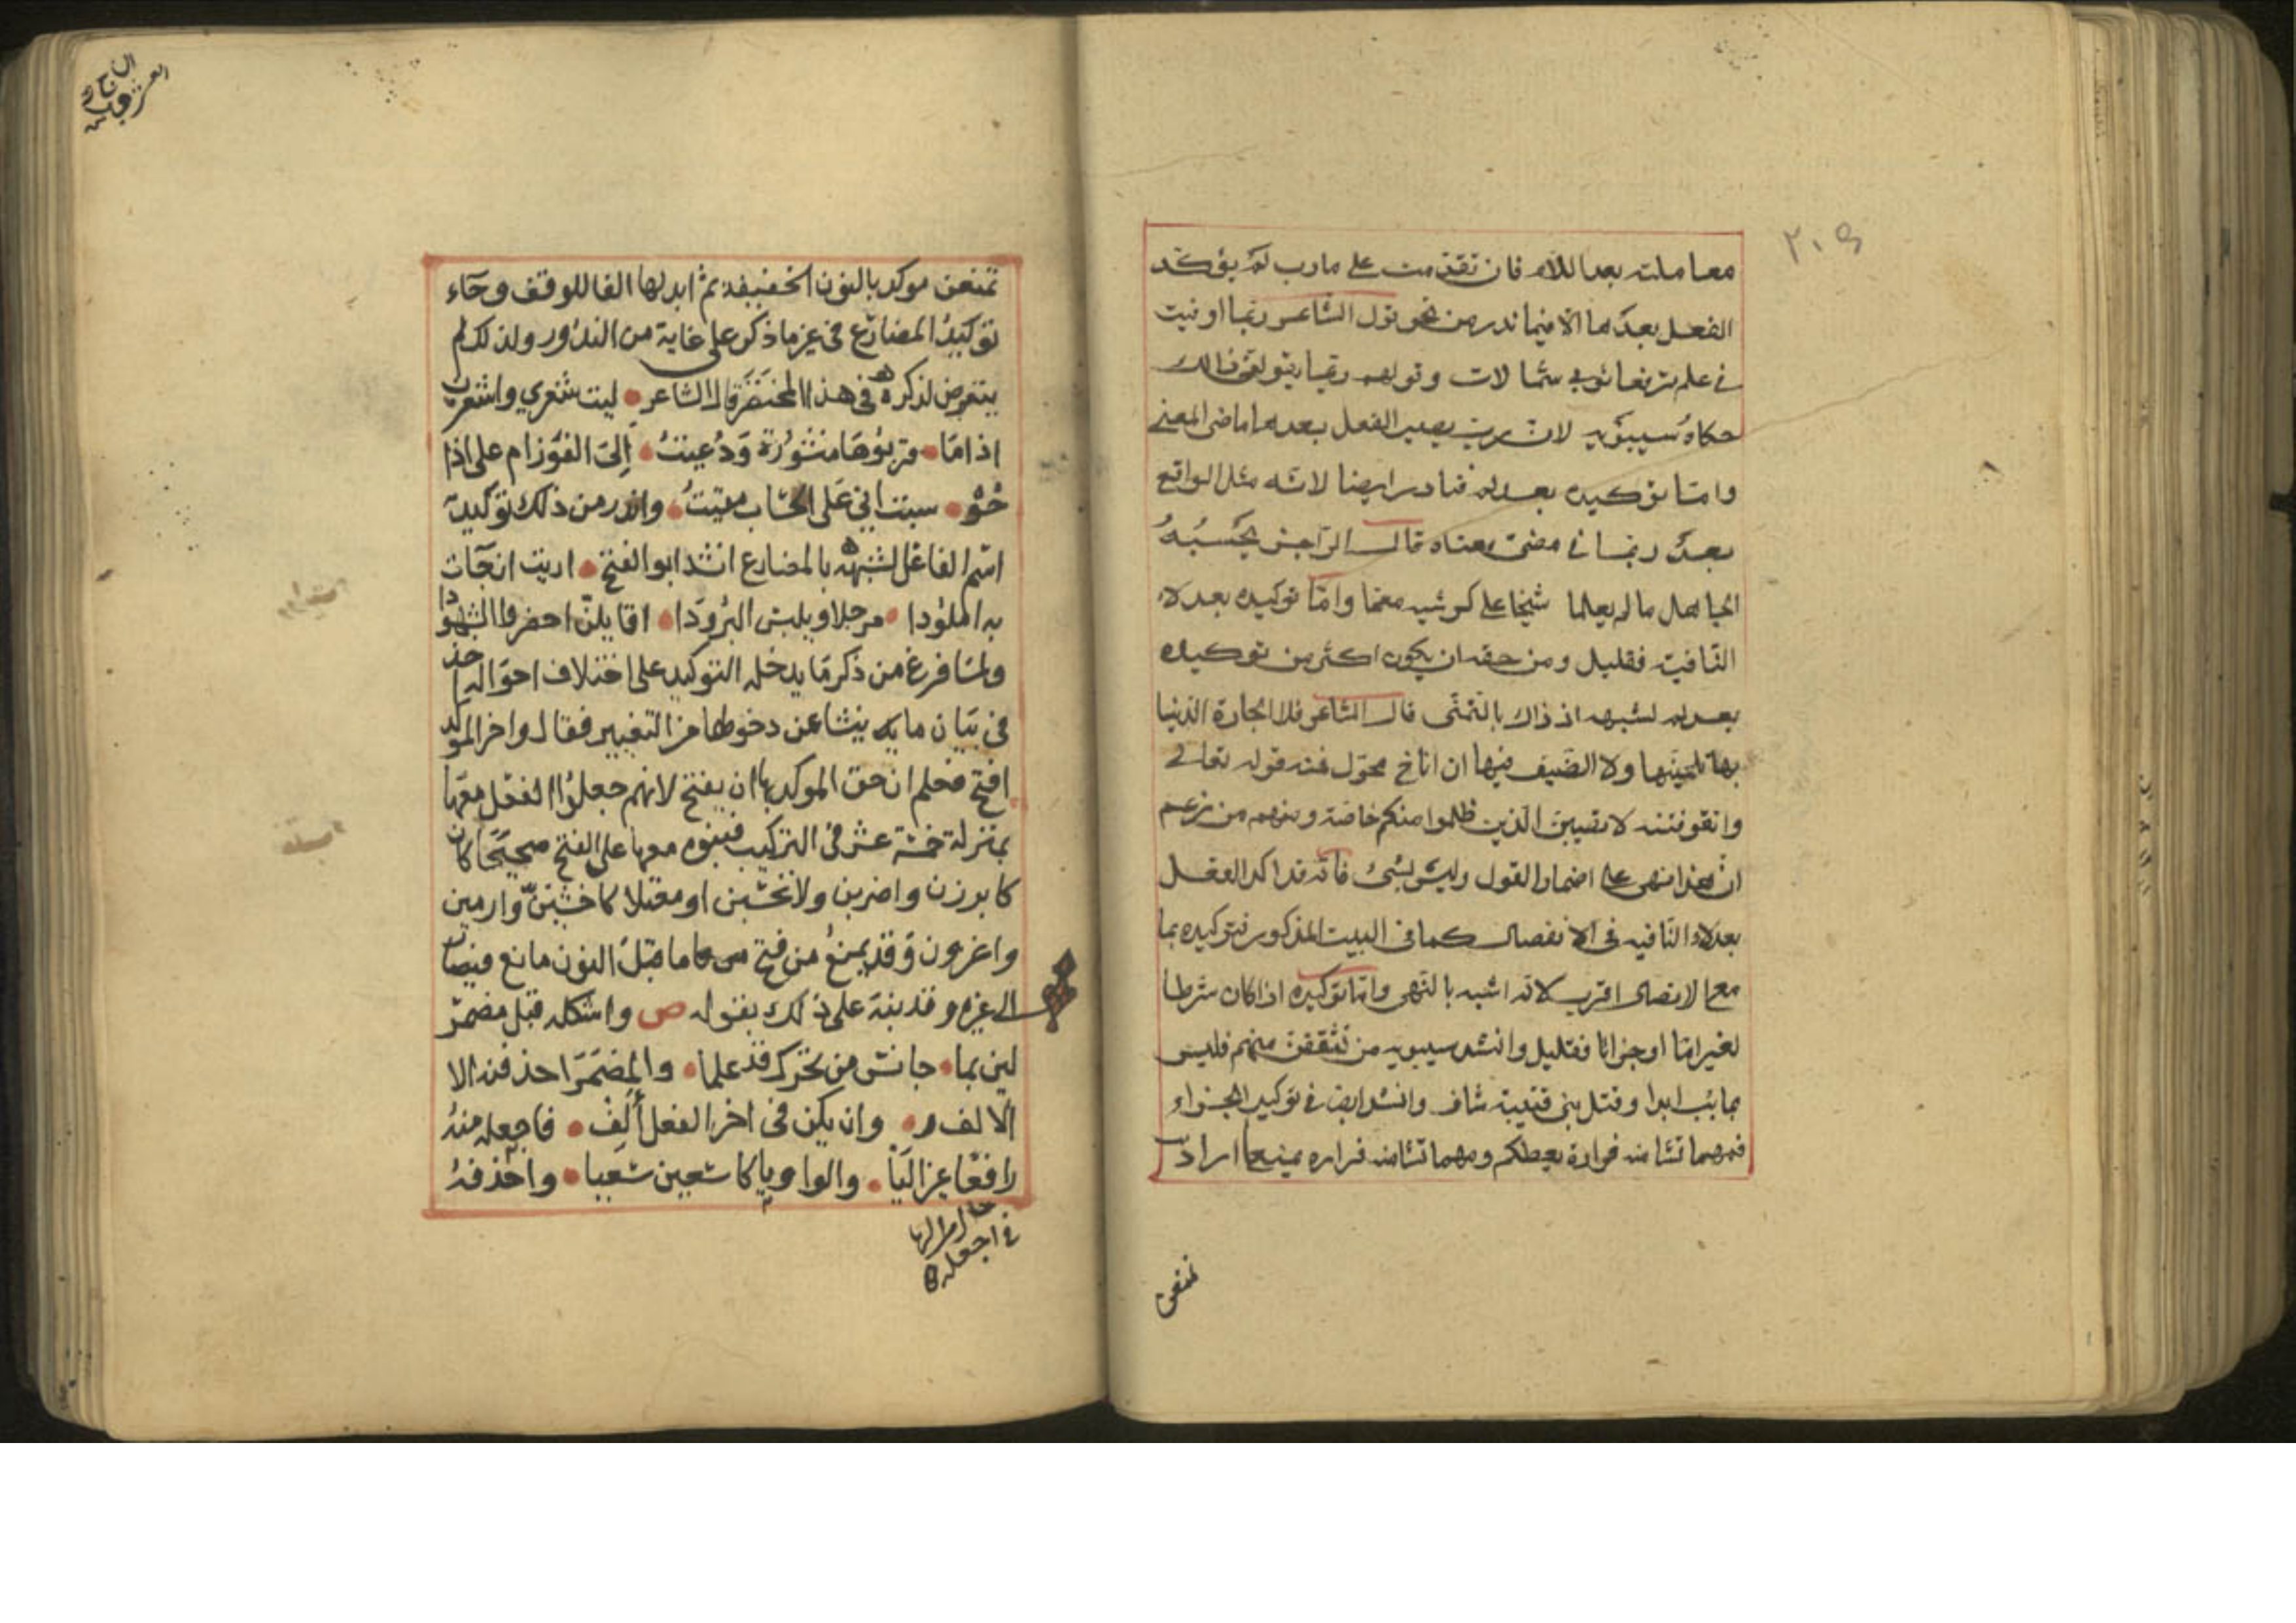 ٢٠٩
معاملته بعد اللام فان تقدمت على ما رب لم يؤكد
الفعل بعدها الا فيما ندر من نحو قول الشاعر ربما اوفيت
في علم ترفعا ثوبي شمالات وقولهم ربما يقولن ذلك
حكاه سيبويه لان رب يصير الفعل بعدها ماضي المعنى
واما توكيده بعد لم فنادر ايضا لانه مثل الواقع
بعد ربما في مضي معناه قال الراجز يحسبه
الجاهل ما لم يعلما شيخا على كرسيه معمما واما توكيده بعد لا
النافية فقليل ومن حقه ان يكون اكثر من توكيده
بعد لم لشبهه اذ ذاك بالنهى قال الشاعر فلا الجارة الدنيا
بها تلحينها ولا الضيف فيها ان اناخ محول فمنه قوله تعالى
واتقو فتنه لا تصيبن الذين ظلموا منكم خاصة ومنهم من زعم
ان هذا نهى على اضمار القول وليس بشئ فانه قد اكد الفعل
بعد لا النافيه فى الانفصال كما فى البيت المذكور فتوكيده بها
مع الاتصال اقرب لانه اشبه بالنهى واما توكيده اذا كان شرطا
لغير اما او جزاءا فقليل وانشد سيبويه من نثقفن منهم فليس
بآئب ابدا وقتل بنى قتيبة شاف وانشد ايضا في توكيد الجزاء
فمهما تشا منه فزارة يعطكم ومهما تشا منه فزاره يمنعا اراد
تمنعن
تمنعن موكد بالنون الخفيفة ثم ابدلها الفا للوقف وجآء
توكيد المضارع في غير ما ذكر على غاية من الندور ولذلك لم
يتعرض لذكره في هذا المختصر قال الشاعر ليت شعري واشعرن
اذا ما قربوها منشورة ودعيت إلى الفوز ام على اذا
حو سبت اني على الحساب مقيت واندر من ذلك توكيد
اسم الفاعل لشبهه بالمضارع انشد ابو الفتح اريت ان جآت
به املودا مرجلا ويلبس البرودا اقايلن احضروا الشهودا
ولما فرغ من ذكر ما يدخله التوكيد على اختلاف احواله اخذ
فى بيان ما ينشا عن دخولها من التغيير فقال واخر الموكد
افتح فعلم ان حق الموكد بها ان يفتح لانهم جعلوا الفعل معها
بمنزلة خمسة عشر فى التركيب فبنوه معها على الفتح صحيحا كان
كابرزن واضربن ولا تحسبن او معتلا كاخشين وارمين
واغزون وقد يمنع من فتح ما قبل النون مانع فيصار
الى غيره وقد نبه على ذلك بقوله ص واشكله قبل مضمر
لين بما جانس من تحرك قد علما والمضمر احذفنه الا
الالف وان يكن فى اخر الفعل ألف فاجعله منه
رافعا غير اليا والواو يا كاسعين سعيا واحذفه
في اجعله